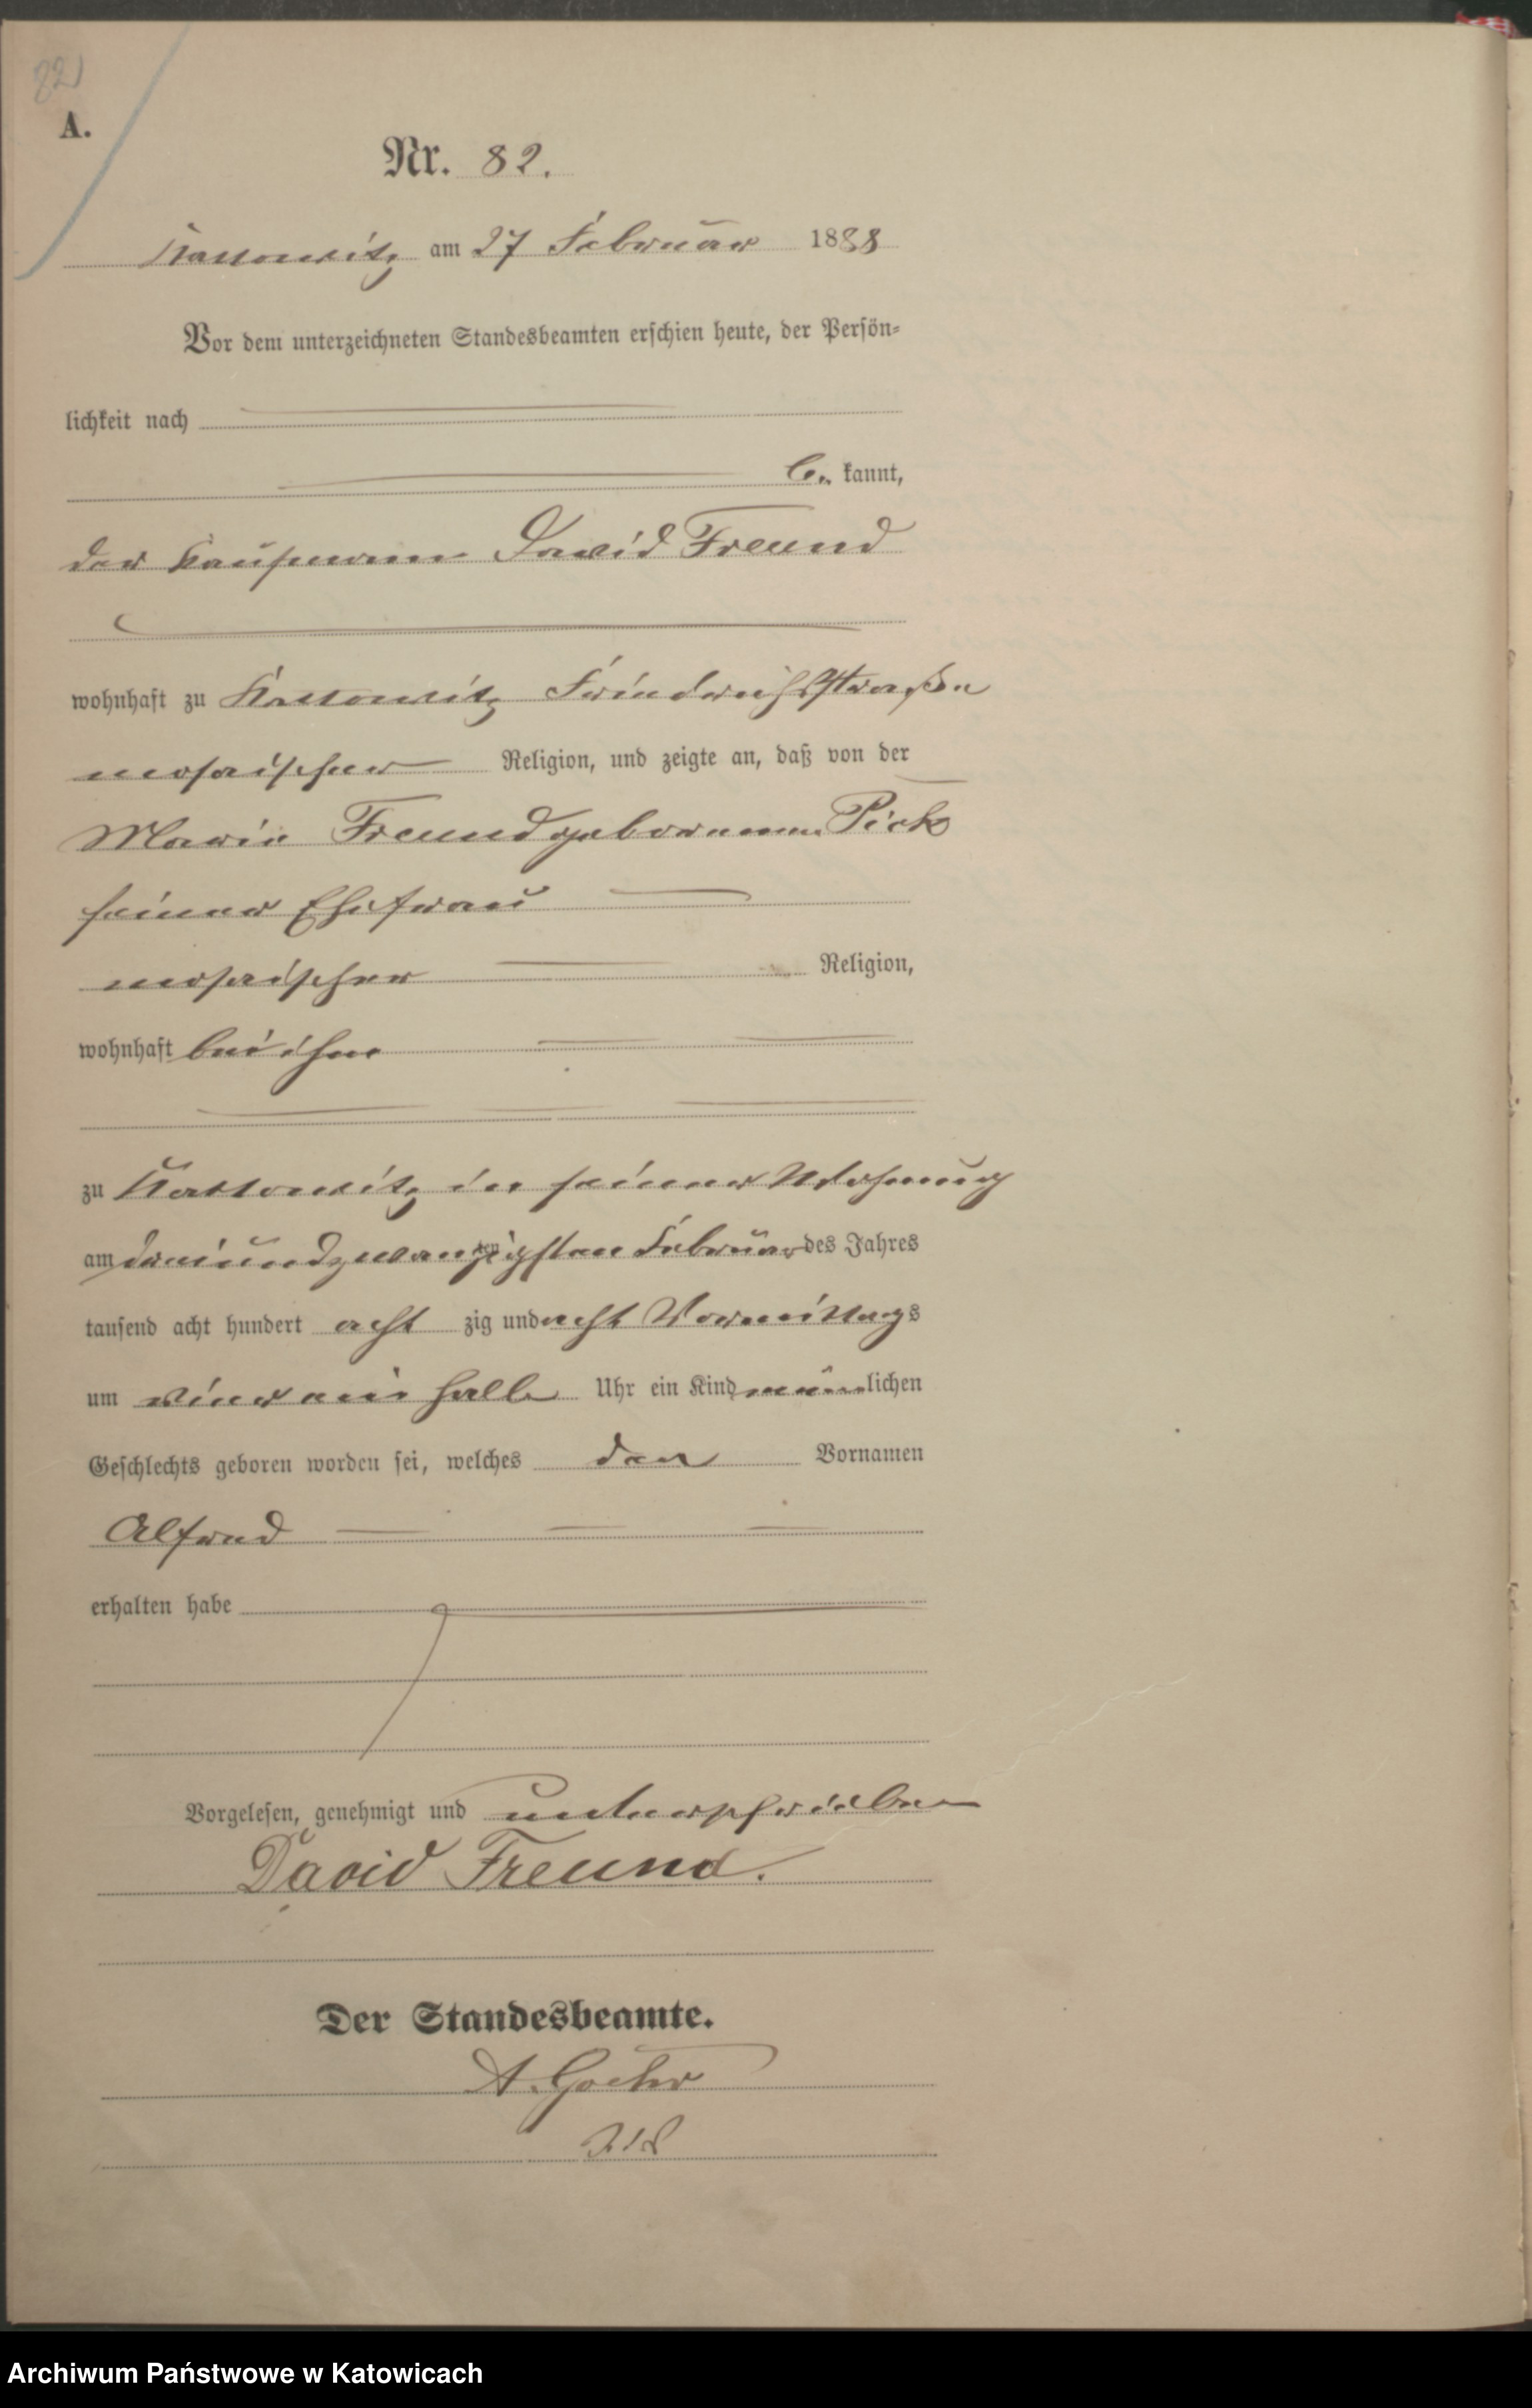 82
A.
Nr. 82.
Kattowitz am 27 Februar 1888
Vor dem unterzeichneten Standesbeamten erschien heute, der Persön-
lichkeit nach
be kannt,
der Kaufmann David Freund
wohnhaft zu Kattowitz Friedrichsstraße
mosaischer Religion, und zeigte an, daß von der
Marie Freund geborenen Pick
seiner Ehefrau
mosaischer Religion,
wohnhaft bei ihm
zu Kattowitz in seiner Wohnung
am dreiundzwanzigsten Februar des Jahres
tausend acht hundert acht zig und acht Vormittags
um Uhr ein Kind männlichen
Geschlechts geboren worden sei, welches den Vornamen
Alfred
erhalten habe
Vorgelesen, genehmigt und unterschrieben
David Freund.
Der Standesbeamte.
Archiwum Państwowe w Katowicach